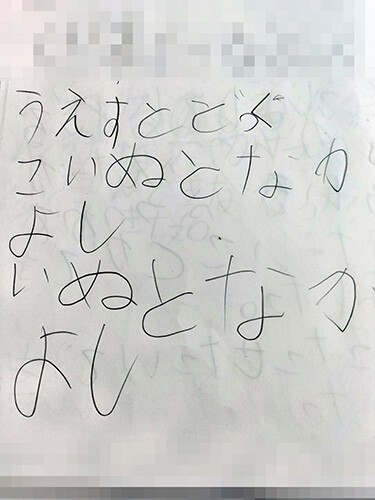 うえすと
こいぬとなか
よし
いぬとなか
よし